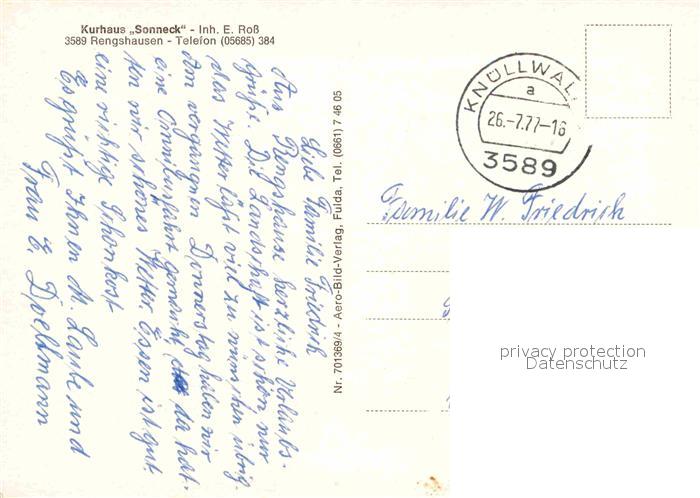 Kurhaus „Sonneck" - Inh. E. Roß
3589 Rengshausen - Telefon (05685) 384
Liebe Familie Friedrich
Aus Rengshause herzliche Urlaubs-
grüße. Die Landschaft ist schön nur
das Wetter läßt viel zu wünschen übrig.
Am vergangenen Donnerstag haben wir
eine Omnibusfahrt gemacht da hat-
ten wir schönes Wetter. Essen ist gut
eine richtige Schonkost
Es grüßt Ihnen M. Laube und
Frau E. Doeltmann
Nr. 701369/4 - Aero-Bild-Verlag, Fulda, Tel. (0661) 7 46 05
KNÜLLWAL
a
26.-7.77-16
3589
Familie W. Friedrich
privacy protection
Datenschutz